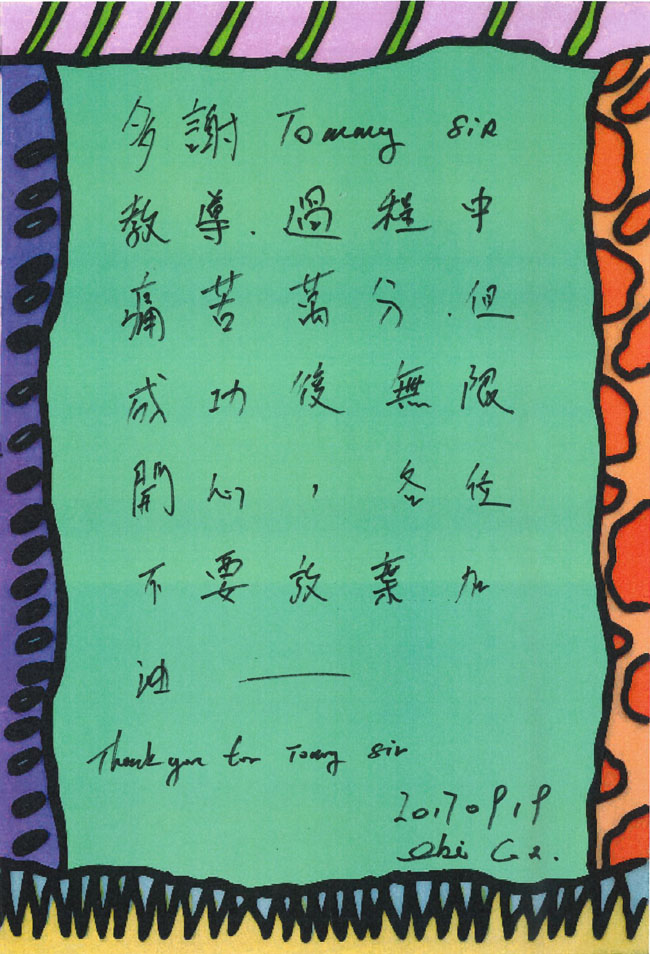 多謝 Tommy sir
教導.過程中
痛苦萬分.但
成功後無限
開心，各位
不要放棄加
油——
Thank you for Tommy sir
2017 09 19